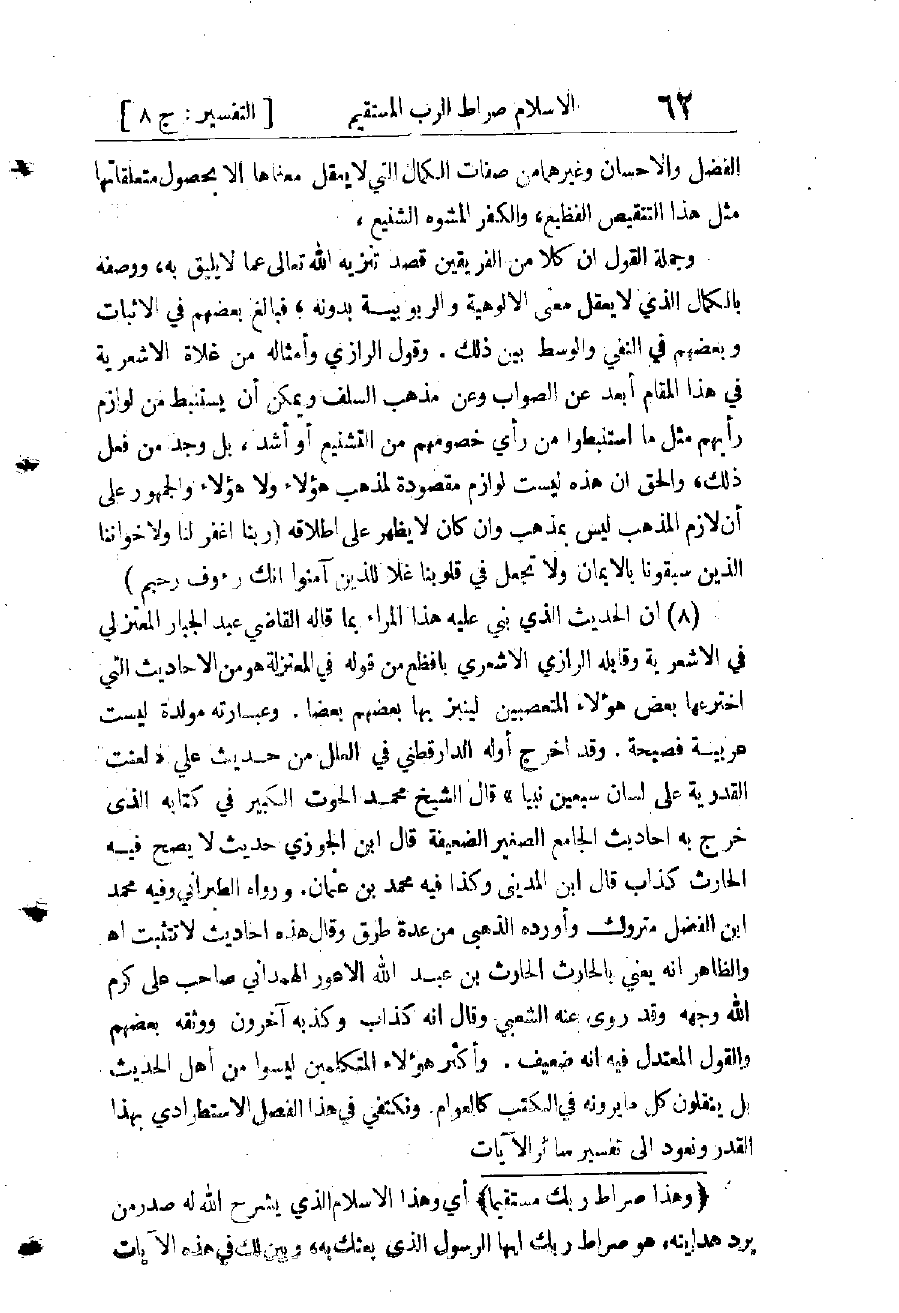 ٦٢ الاسلام صراط الرب المستقيم [ التفسير : ج ٨ ]
الفضل والاحسان وغيرهما من صفات الكمال التي لا يعقل معناها الا بحصول متعلقاتها
مثل هذا التنقيص الفظيع، والكفر المشوه الشنيع ،
وجملة القول ان كلا من الفريقين قصد تنزيه الله تعالى عما لا يليق به، ووصفه
بالكمال الذي لا يعقل معنى الالوهية والربوبية بدونه ؛ فبالغ بعضهم في الاثبات
وبعضهم في النفي والوسط بين ذلك . وقول الرازي وأمثاله من غلاة الاشعرية
في هذا المقام أبعد عن الصواب وعن مذهب السلف ويمكن أن يستنبط من لوازم
رأيهم مثل ما استنبطوا من رأي خصومهم من التشنيع أو أشد ، بل وجد من فعل
ذلك، والحق ان هذه ليست لوازم مقصودة لمذهب هؤلاء ولا هؤلاء والجمهور على
أن لازم المذهب ليس بمذهب وان كان لا يظهر على اطلاقه (ربنا اغفر لنا ولاخواننا
الذين سبقونا بالايمان ولا تجعل في قلوبنا غلا للذين آمنوا انك رءوف رحيم )
(٨) ان الحديث الذي بني عليه هذا المراء بما قاله القاضي عبد الجبار المعتزلي
في الاشعرية وقابله الرازي الاشعري بافظع من قوله في المعتزلة هو من الاحاديث التي
اخترعها بعض هؤلاء المتعصبين لينبز بها بعضهم بعضا . وعبارته مولدة ليست
عربية فصيحة . وقد اخرج أوله الدارقطني في العلل من حديث علي « لعنت
القدرية على لسان سبعين نبيا » قال الشيخ محمد الحوت الكبير في كتابه الذى
خرج به احاديث الجامع الصغير الضعيفة قال ابن الجوزي حديث لا يصح فيه
الحارث كذاب قال ابن المديني وكذا فيه محمد بن عثمان. ورواه الطبراني وفيه محمد
ابن الفضل متروك وأورده الذهبي من عدة طرق وقال هذه احاديث لا تثبت اه
والظاهر انه يعني بالحارث الحارث بن عبد الله الاعور الهمداني صاحب على كرم
الله وجهه وقد روى عنه الشعبي وقال انه كذاب وكذبه آخرون ووثقه بعضهم
والقول المعتدل فيه انه ضعيف . وأكثر هؤلاء المتكلمين ليسوا من أهل الحديث
بل ينقلون كل ما يرونه في الكتب كالعوام. ونكتفي في هذا الفصل الاستطرادي بهذا
القدر ونعود الى تفسير سائر الآيات
﴿وهذا صراط ربك مستقيما﴾ أي وهذا الاسلام الذي يشرح الله له صدر من
يرد هدايته، هو صراط ربك ايها الرسول الذي بعثك به، وبين لك في هذه الآيات